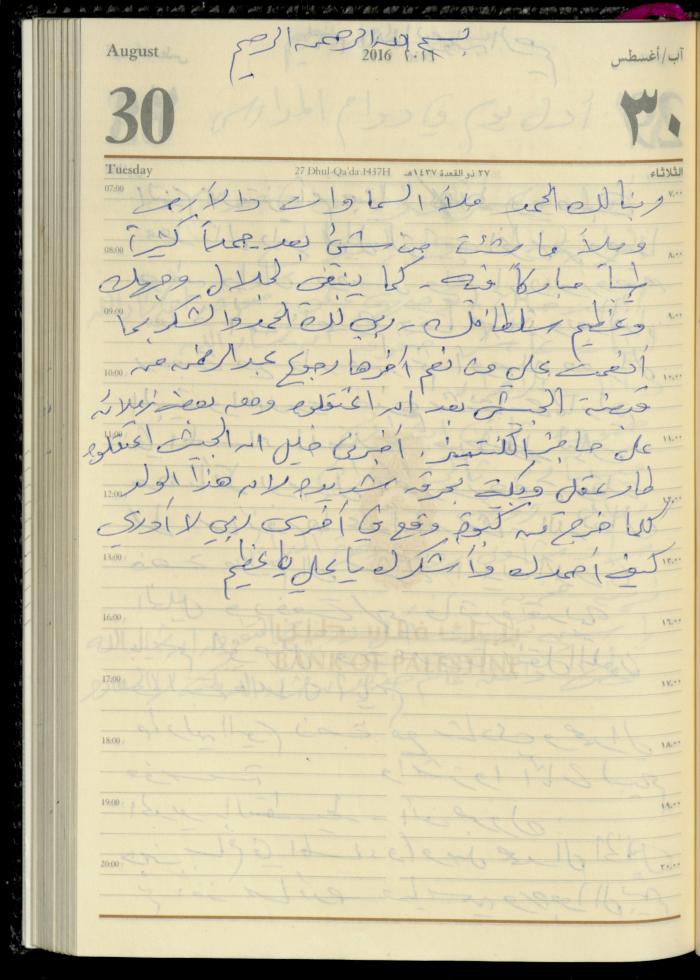 بسم الله الرحمن الرحيم
August 2016 ٢٠١٦ آب/أغسطس
30 ٣٠
Tuesday 27 Dhul-Qa'da 1437H ٢٧ ذو القعدة ١٤٣٧هـ الثلاثاء
07:00 ربنا لك الحمد ملأ السماوات والأرض ٧:٠٠
وملأ ما شئت من شئ بعد حمداً كثيراً
08:00 ٨:٠٠
طيباً مباركاً فيه - كما ينبغي لجلال وجهك
09:00 وعظيم سلطانك - ربي لك الحمد والشكر بما ٩:٠٠
أنعمت علي من نعم آخرها رجوع عبد الرحمن من
10:00 ١٠:٠٠
قبضة الجيش بعد ان اعتقلوه ومعه بعض زملائه
11:00 على حاجز الكنتينر. أخبرني خليل ان الجيش اعتقلوه ١١:٠٠
طار عقلي وبكيت بحرقة شديدة لان هذا الولد
12:00 ١٢:٠٠
كلما خرج من كبوة وقع في أخرى ربي لا أدري
13:00 كيف أحمدك وأشكرك يا علي يا عظيم ١٣:٠٠
16:00 ١٦:٠٠
BANK OF PALESTINE
17:00 ١٧:٠٠
18:00 ١٨:٠٠
19:00 ١٩:٠٠
20:00 ٢٠:٠٠